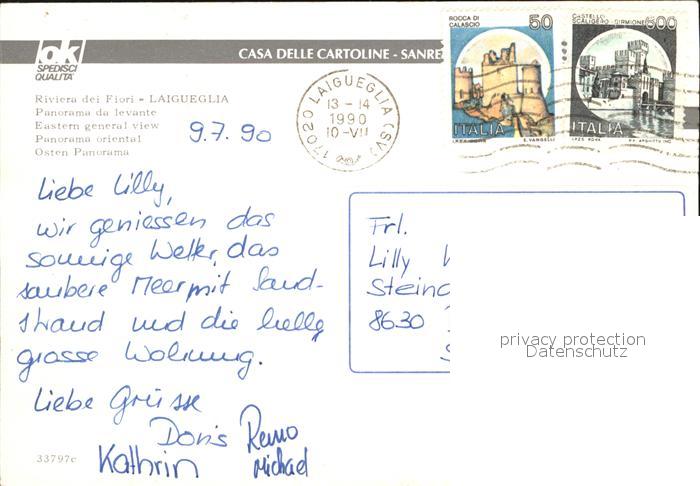 ok
SPEDISCI
QUALITA'
CASA DELLE CARTOLINE - SANRE
ROCCA DI
CALASCIO
50
ITALIA
E. VANGELLI
CASTELLO
SCALIGERO - SIRMIONE
600
ITALIA
17020 LAIGUEGLIA (SV)
13 - 14
1990
10-VII
Riviera dei Fiori - LAIGUEGLIA
Panorama da levante
Eastern general view
Panorama oriental
Osten Panorama
9.7.90
Liebe Lilly,
wir geniessen das
sonnige Wetter, das
saubere Meer mit Sand-
strand und die helle
grosse Wohnung.
Liebe Grüsse
Doris Remo
Kathrin Michael
Frl.
Lilly
Steinc
8630
privacy protection
Datenschutz
33797c